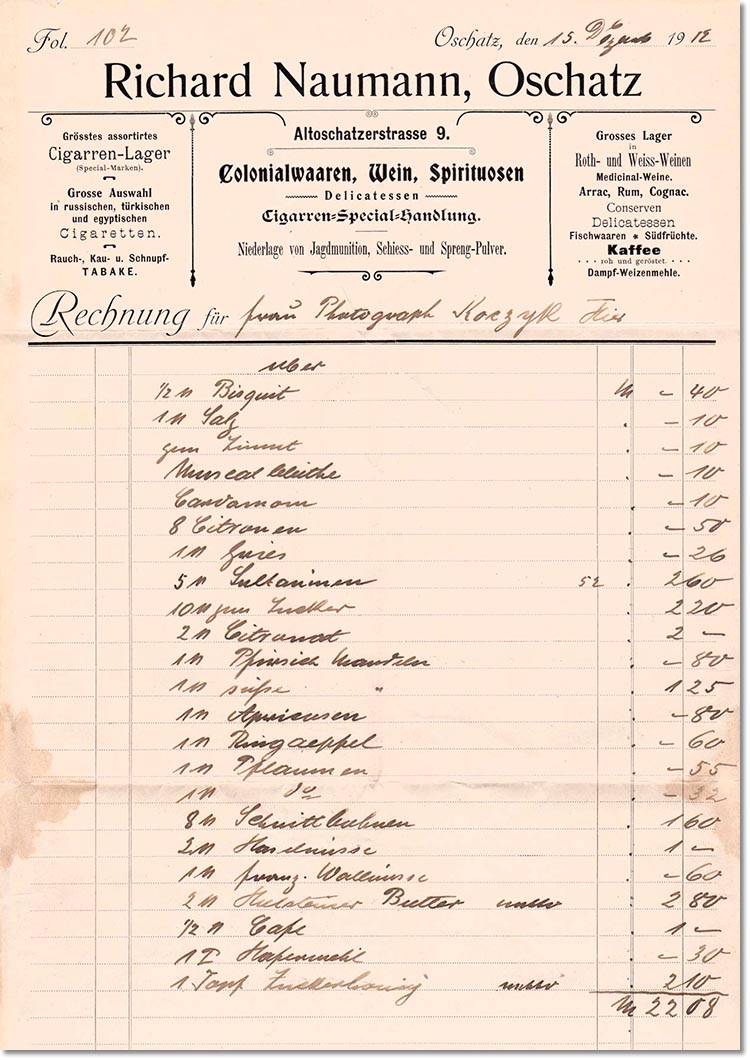 Fol. 102
Oschatz, den 15. Dezemb 1912
Richard Naumann, Oschatz
Grösstes assortirtes
Cigarren-Lager
(Special-Marken).
Grosse Auswahl
in russischen, türkischen
und egyptischen
Cigaretten.
Rauch-, Kau- u. Schnupf-
TABAKE.
Altoschatzerstrasse 9.
Colonialwaaren, Wein, Spirituosen
Delicatessen
Cigarren-Special-Handlung.
Niederlage von Jagdmunition, Schiess- und Spreng-Pulver.
Grosses Lager
in
Roth- und Weiss-Weinen
Medicinal-Weine.
Arrac, Rum, Cognac.
Conserven
Delicatessen
Fischwaaren * Südfrüchte.
Kaffee
roh und geröstet.
Dampf-Weizenmehle.
Rechnung für Frau Photograph Koczyk Hier
Uber
1/2 ℔ Bisquit M – 40
1 ℔ Salz . – 10
gem Zimmt . – 10
Muscatblüthe . – 10
Cardamom . – 10
8 Citronen . – 50
1 ℔ Gries . – 26
5 ℔ Sultaninen 52 . 2 60
10 ℔ gem Zucker . 2 20
2 ℔ Citronat . 2 –
1 ℔ Pfirsich Mandeln . – 80
1 ℔ süße " . 1 25
1 ℔ Apricosen . – 80
1 ℔ Ringaeppfel . – 60
1 ℔ Pflaumen . – 55
1 ℔ do . – 32
8 ℔ Schnittbohnen . 1 60
2 ℔ Haselnüsse . 1 –
1 ℔ franz. Wallnüsse . – 60
2 ℔ Holsteiner Butter netto . 2 80
1/2 ℔ Cafe . 1 –
1 Hafermehl . – 30
1 Topf Zuckerhonig netto 2 10
M 22 08